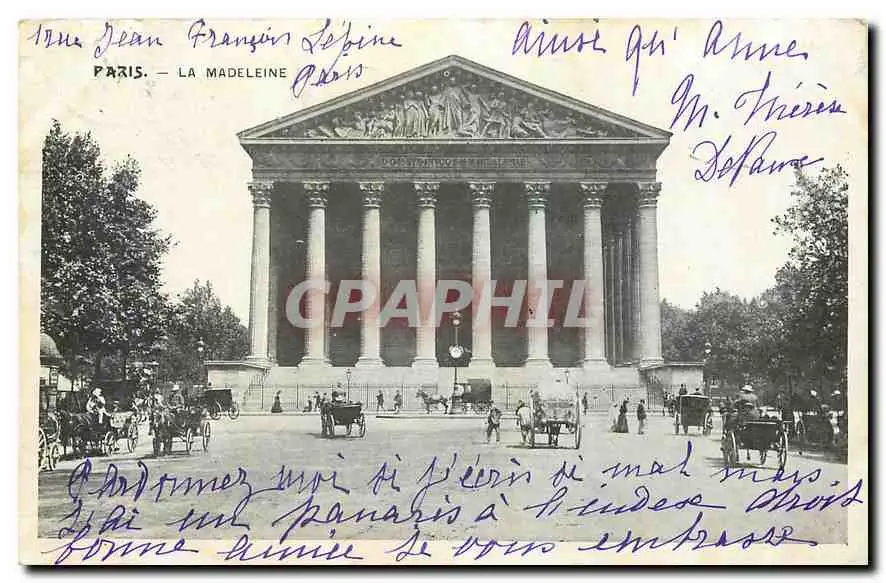 1 rue Jean François Lépine
Paris
PARIS. — LA MADELEINE
ainsi qu' Anne
M. Thérèse
CPARAMA
CARAPHIL
Pardonnez moi si j'écris si mal mais
j'ai un panaris à l'index droit
bonne année je vous embrasse